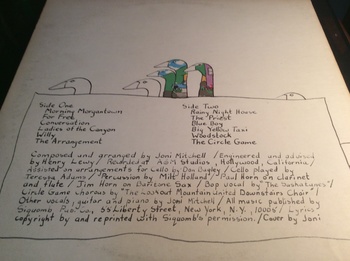 Side One
Morning Morgantown
For Free
Conversation
Ladies of the Canyon
Willy
The Arrangement
Side Two
Rainy Night House
The Priest
Blue Boy
Big Yellow Taxi
Woodstock
The Circle Game
Composed and arranged by Joni Mitchell / Engineered and advised
by Henry Lewy / Recorded at A&M Studios, Hollywood, California /
Assisted on arrangements for cello by Don Bagley / Cello played by
Teressa Adams / Percussion by Milt Holland / Paul Horn on clarinet
and flute / Jim Horn on baritone sax / Bop vocal by "The Saskatunes" /
Circle Game chorus by "The Lookout Mountain United Downstairs Choir" /
Other vocals, guitar and piano by Joni Mitchell / All music published by
Siquomb Pub. Co, 55 Liberty Street, New York, N.Y., 10005 / Lyrics
copyright by and reprinted with Siquomb's permission. / Cover by Joni